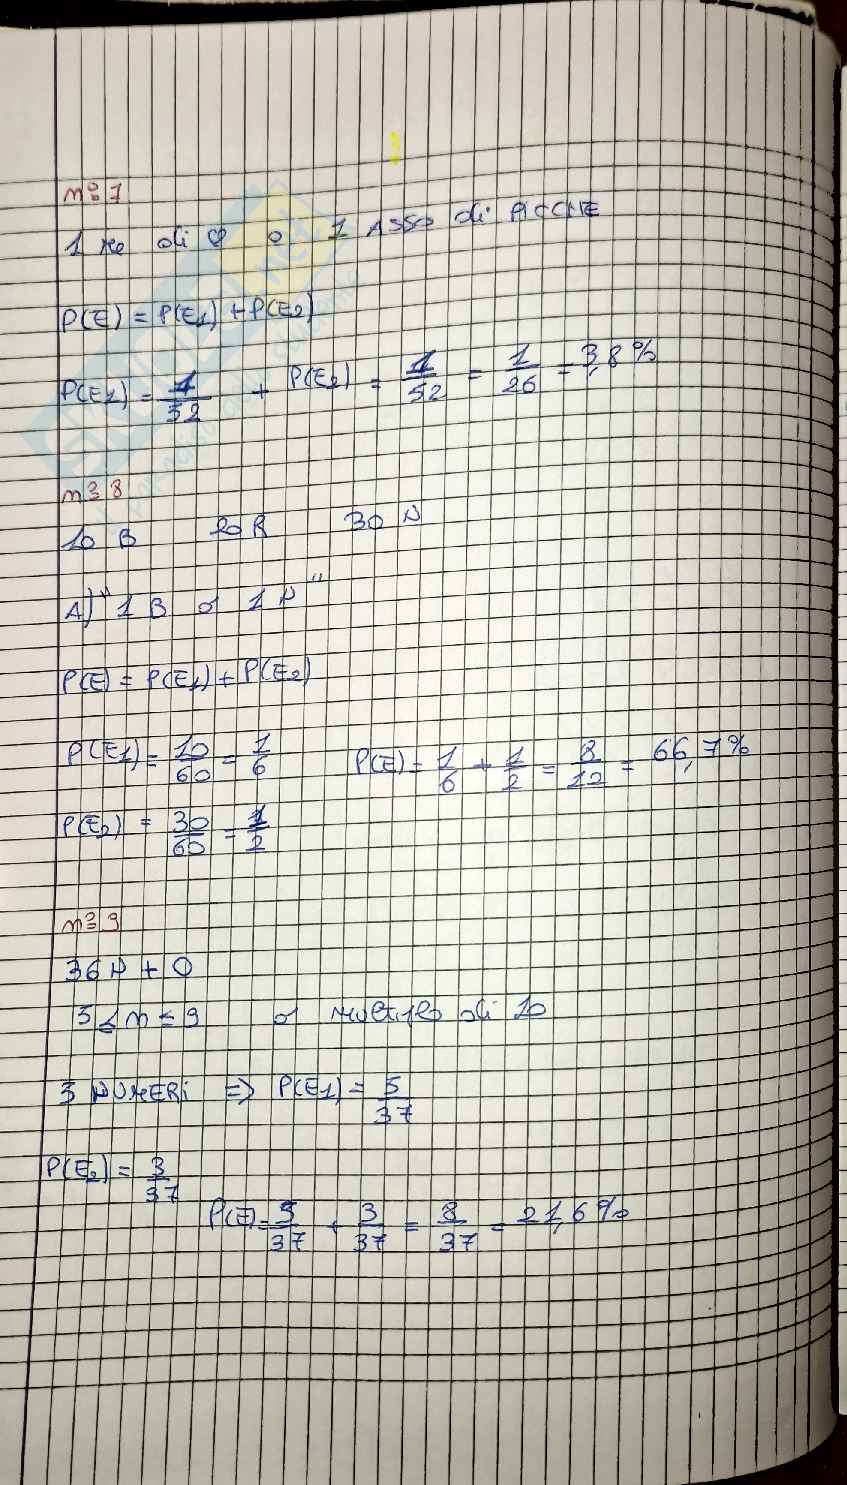 n° 7
1 re di ♡ o 1 ASSO di PICCHE
P(E) = P(E1) + P(E2)
P(E1) = 1/52 + P(E2) = 1/52 = 1/26 = 3,8%
n° 8
10 B 20 R 30 N
A) "1 B o 1 N"
P(E) = P(E1) + P(E2)
P(E1) = 10/60 = 1/6 P(E) = 1/6 + 1/2 = 8/12 = 66,7%
P(E2) = 30/60 = 1/2
n° 9
36 N + 0
5 ≤ n ≤ 9 o multiplo di 10
5 NUMERi => P(E1) = 5/37
P(E2) = 3/37
P(E) = 5/37 + 3/37 = 8/37 = 21,6%